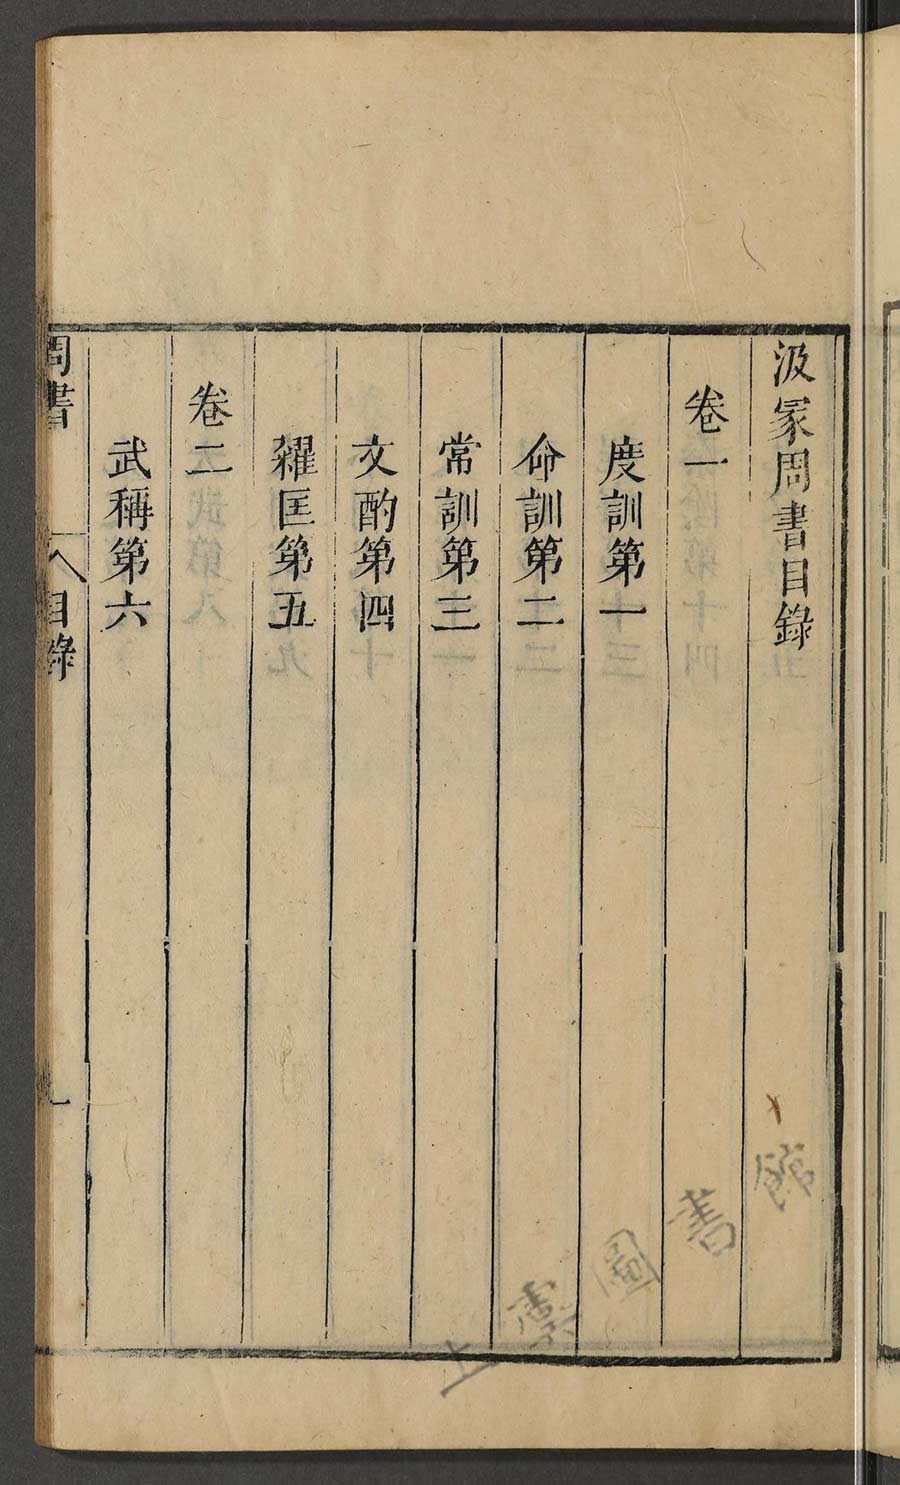 汲冢周書目錄
卷一
度訓第一
命訓第二
常訓第三
文酌第四
糴匡第五
卷二
武稱第六
周書
目錄
一
圖書館